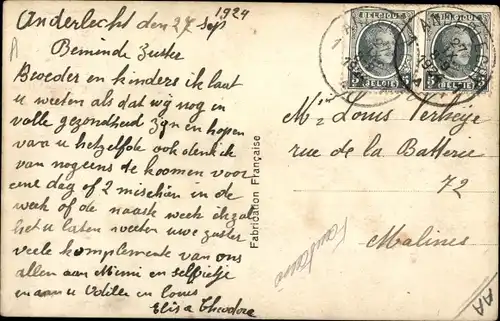 Anderlecht den 27 Sept 1924
Beminde Zuster
Broeder en kinders ik laat
u weeten als dat wij nog in
volle gezondheid zyn en hopen
van u hetzelfde ook denk ik
van nog eens de koomen voor
eene dag of 2 mischien in de
week of de naaste week ik zal
het u laten weeten uwe zuster
veele komplemente van ons
allen aan Mimi en selfietje
en aan u Odilen en louis
Elisa Theodora
Fabrication Française
BELGIQUE
BELGIE
BELGIQUE
BELGIE
Mr Louis Verheye
rue de la Batterie
72
Malines
AA